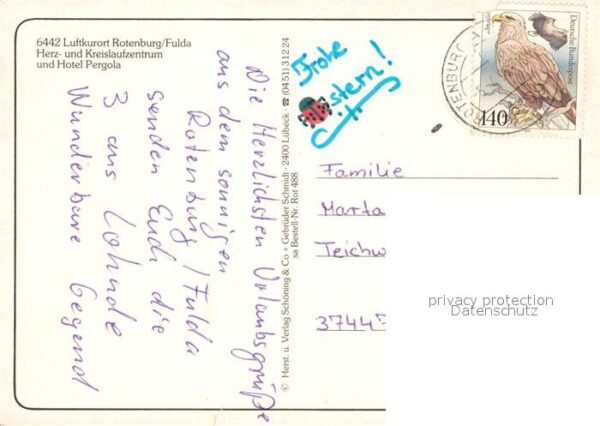 6442 Luftkurort Rotenburg/Fulda
Herz- und Kreislaufzentrum
und Hotel Pergola
Die Herzlichsten Urlaubsgrüße
aus dem sonnigen
Rotenburg / Fulda
senden Euch die
3 aus Lohnde
Wunderbare Gegend
© Herst. u. Verlag Schöning & Co + Gebrüder Schmidt · 2400 Lübeck · ☎ (0451) 31224
sa Bestell-Nr. Rot 488
Frohe
Ostern!
Deutsche Bundespost
140
ROTENBURG
Familie
Marta
Teichw
3744
privacy protection
Datenschutz